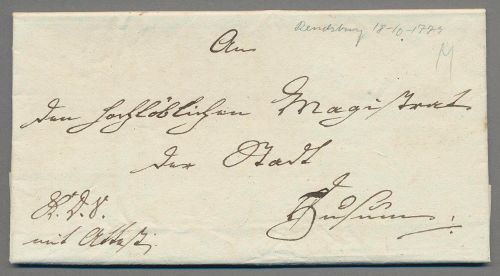 Rendsburg 18-10-1779
An
den hochlöblichen Magistrat
der Stadt
Husum
K. D. S.
mit Attest.